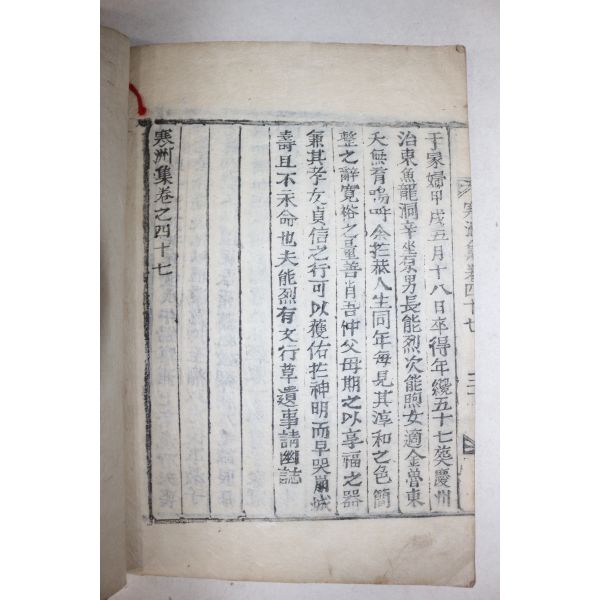 于家婦甲戌五月十八日卒得年纔五十七葬慶州
治東魚龍洞辛坐原男長能烈次能煦女適金魯東
夭無育嗚呼余於恭人生同年每見其淳和之色簡
整之辭寬裕之量善肖吾仲父母期之以享福之器
兼其孝友貞信之行可以獲佑於神明而早哭崩城
壽且不永命也夫能烈有文行草遺事請幽誌
寒洲集卷之四十七